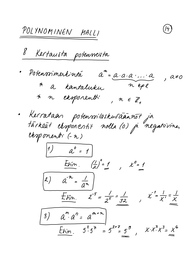 POLYNOMINEN MALLI
14
8. Kertausta potensseista
• Potenssimerkintä aⁿ = a·a·a·...·a , a≠0
n kpl
* a kantaluku
* n eksponentti , n ∈ ℤ₊
• Kerrataan potenssilaskusäännöt ja
tärkeät eksponentit nolla (0) ja negatiivinen
eksponentti (-n)
1) a⁰ = 1
Esim. (½)⁰ = 1 , x⁰ = 1
2) a⁻ⁿ = 1/aⁿ
Esim. 2⁻⁵ = 1/2⁵ = 1/32 , x⁻¹ = 1/x¹ = 1/x
3) aᵐ aⁿ = aᵐ⁺ⁿ
Esim. = 5⁸ , x·x²·x³ = x⁶